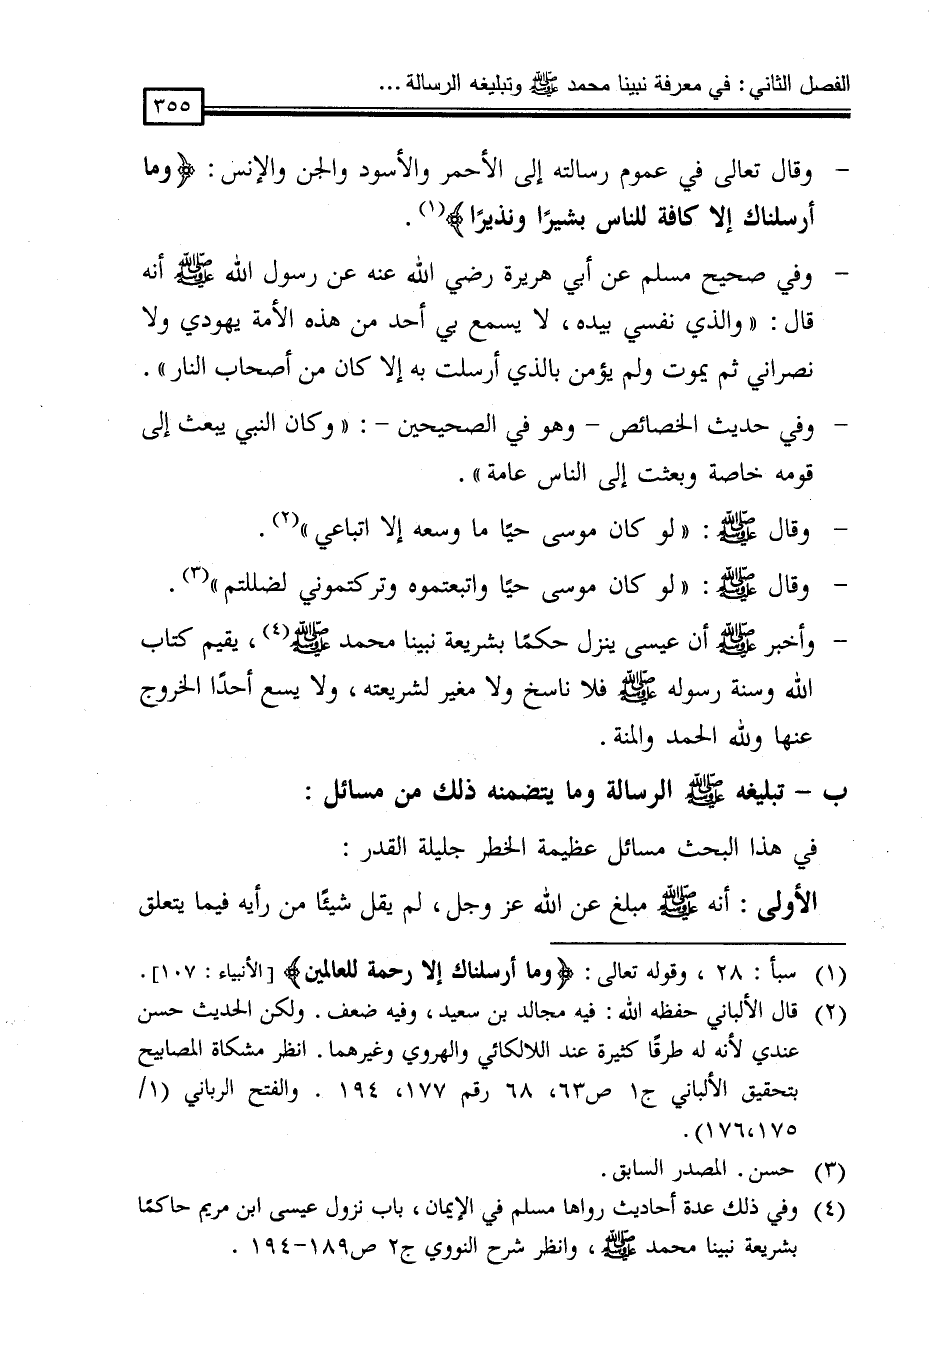 الفصل الثاني : في معرفة نبينا محمد ﷺ وتبليغه الرسالة ...
٣٥٥
– وقال تعالى في عموم رسالته إلى الأحمر والأسود والجن والإنس : ﴿وما
أرسلناك إلا كافة للناس بشيرًا ونذيرًا﴾(١) .
– وفي صحيح مسلم عن أبي هريرة رضي الله عنه عن رسول الله ﷺ أنه
قال : «والذي نفسي بيده ، لا يسمع بي أحد من هذه الأمة يهودي ولا
نصراني ثم يموت ولم يؤمن بالذي أرسلت به إلا كان من أصحاب النار» .
– وفي حديث الخصائص – وهو في الصحيحين – : «وكان النبي يبعث إلى
قومه خاصة وبعثت إلى الناس عامة» .
– وقال ﷺ : «لو كان موسى حيًا ما وسعه إلا اتباعي»(٢) .
– وقال ﷺ : «لو كان موسى حيًا واتبعتموه وتركتموني لضللتم»(٣) .
– وأخبر ﷺ أن عيسى ينزل حكمًا بشريعة نبينا محمد ﷺ(٤) ، يقيم كتاب
الله وسنة رسوله ﷺ فلا ناسخ ولا مغير لشريعته ، ولا يسع أحدًا الخروج
عنها ولله الحمد والمنة .
ب – تبليغه ﷺ الرسالة وما يتضمنه ذلك من مسائل :
في هذا البحث مسائل عظيمة الخطر جليلة القدر :
الأولى : أنه ﷺ مبلغ عن الله عز وجل ، لم يقل شيئًا من رأيه فيما يتعلق
(١) سبأ : ٢٨ ، وقوله تعالى : ﴿وما أرسلناك إلا رحمة للعالمين﴾ [الأنبياء : ١٠٧] .
(٢) قال الألباني حفظه الله : فيه مجالد بن سعيد ، وفيه ضعف . ولكن الحديث حسن
عندي لأنه له طرقًا كثيرة عند اللالكائي والهروي وغيرهما . انظر مشكاة المصابيح
بتحقيق الألباني ج١ ص٦٣، ٦٨ رقم ١٧٧، ١٩٤ . والفتح الرباني (١/
١٧٦،١٧٥) .
(٣) حسن . المصدر السابق .
(٤) وفي ذلك عدة أحاديث رواها مسلم في الإيمان ، باب نزول عيسى ابن مريم حاكمًا
بشريعة نبينا محمد ﷺ ، وانظر شرح النووي ج٢ ص١٨٩–١٩٤ .